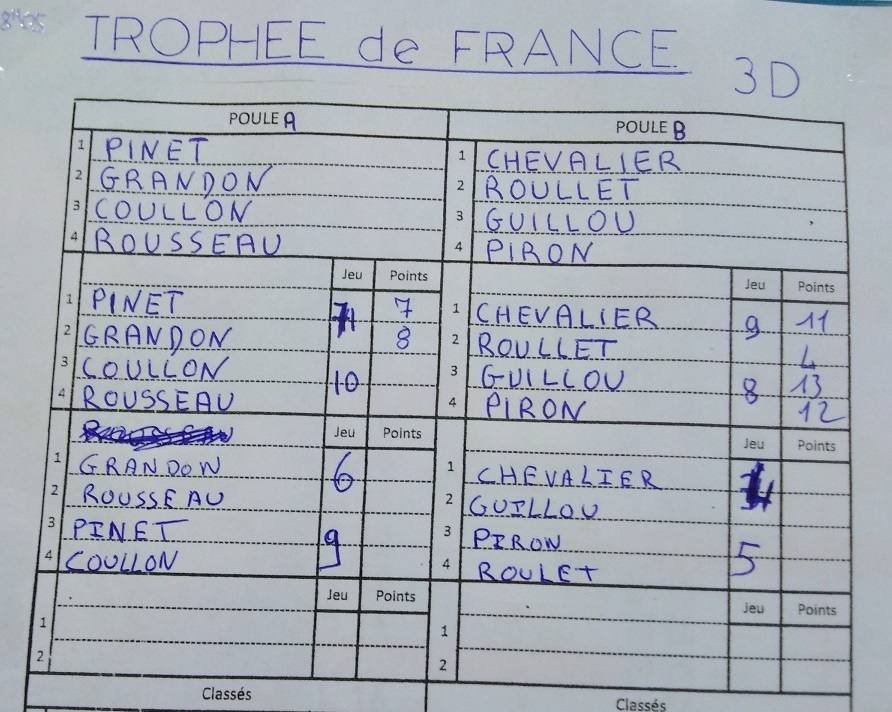 TROPHEE de FRANCE
3D
POULE A
1 PINET
2 GRANDON
3 COULLON
4 ROUSSEAU
Jeu Points
1 PINET 7
2 GRANDON 8
3 COULLON 10
4 ROUSSEAU
Jeu Points
1 GRANDON 6
2 ROUSSEAU
3 PINET 9
4 COULLON
Jeu Points
1
2
Classés
POULE B
1 CHEVALIER
2 ROULLET
3 GUILLOU
4 PIRON
Jeu Points
1 CHEVALIER 9 11
2 ROULLET 4
3 GUILLOU 8 13
4 PIRON 12
Jeu Points
1 CHEVALIER
2 GUILLOU
3 PIRON 5
4 ROULET
Jeu Points
1
2
Classés